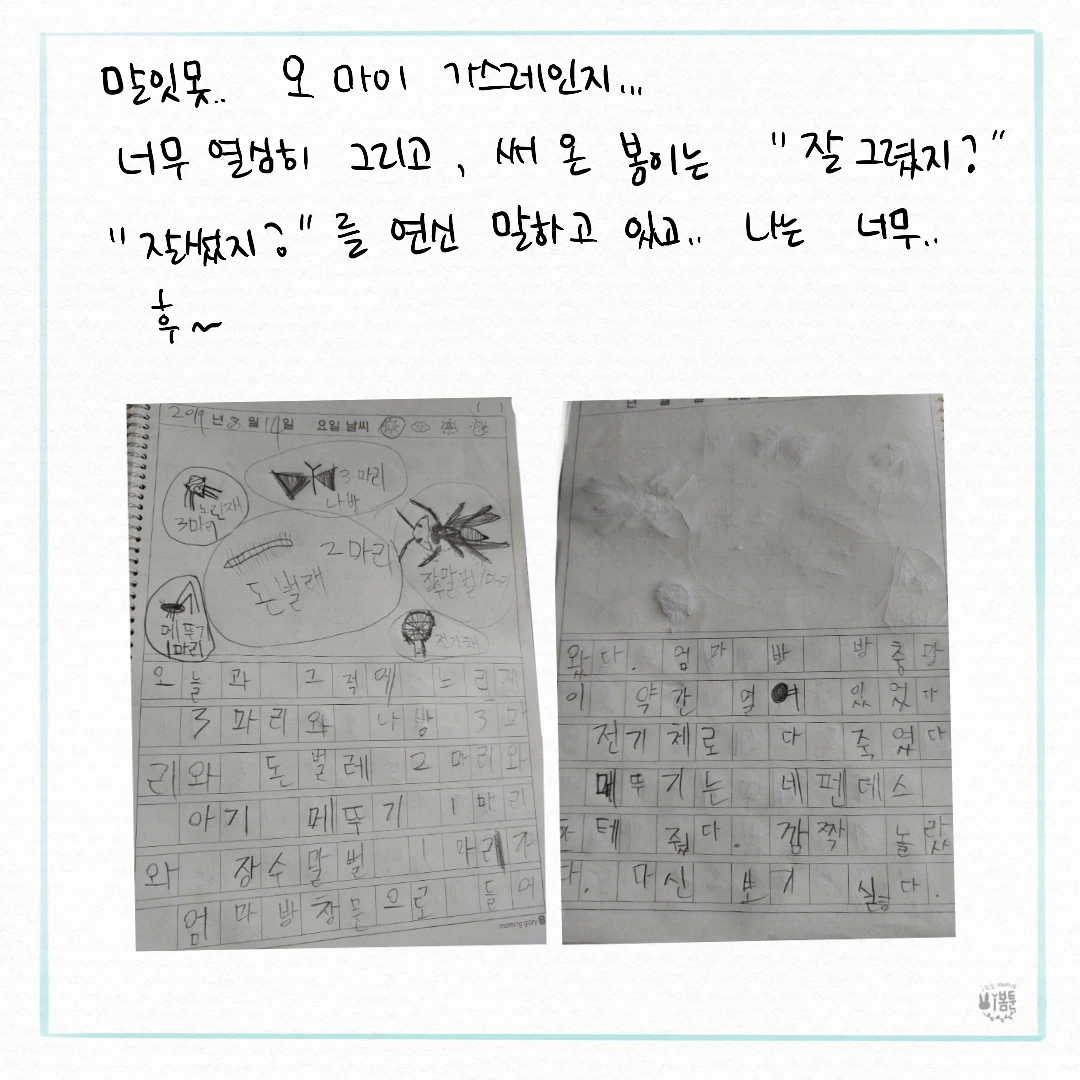 말잇못.. 오 마이 가스레인지...
너무 열심히 그리고, 써 온 봉이는 "잘 그렸지?"
"잘썼지?"를 연신 말하고 있고.. 나는 너무..
후~
2019년 8월 19일 요일 날씨
3마리
나방
노린재
3마리
2마리
돈벌래
장수말벌 1마리
메뚜기
1마리
전기채
오늘 과 그적에 느린재
3마리와 나방 3마
리와 돈벌레 2마리와
아기 메뚜기 1마리
와 장수말벌 1마리가
엄마방창문으로 들어
morning glory
년 월 일 요일
왔다. 엄마방 방충망
이 약간 열여 있었다
전기체로 다 죽였다
메뚜기는 네펜데스
한테 줬다. 깜짝 놀랐
다. 다신 보기 싫다.
봄툰